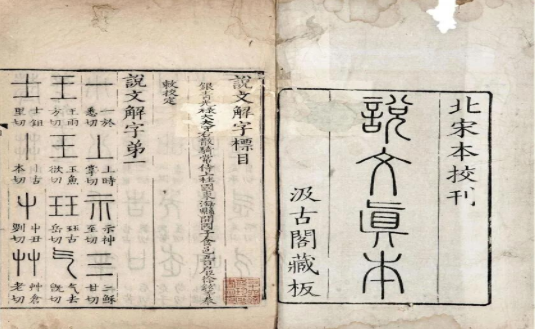 北宋本校刊
說文眞本
汲古閣藏板
說文解字標目
銀青光祿大夫守右散騎常侍上柱國東海縣開國子食邑五百戶臣徐鉉等奉
敕校定
說文解字弟一
一 一於悉切 上 上時掌切 示 示神至切 三 三穌甘切
王 王雨方切 玉 玉魚欲切 玨 玨古岳切 气 气去旣切
士 士鉏里切 丨 丨古本切 屮 屮丑列切 艸 艸倉老切